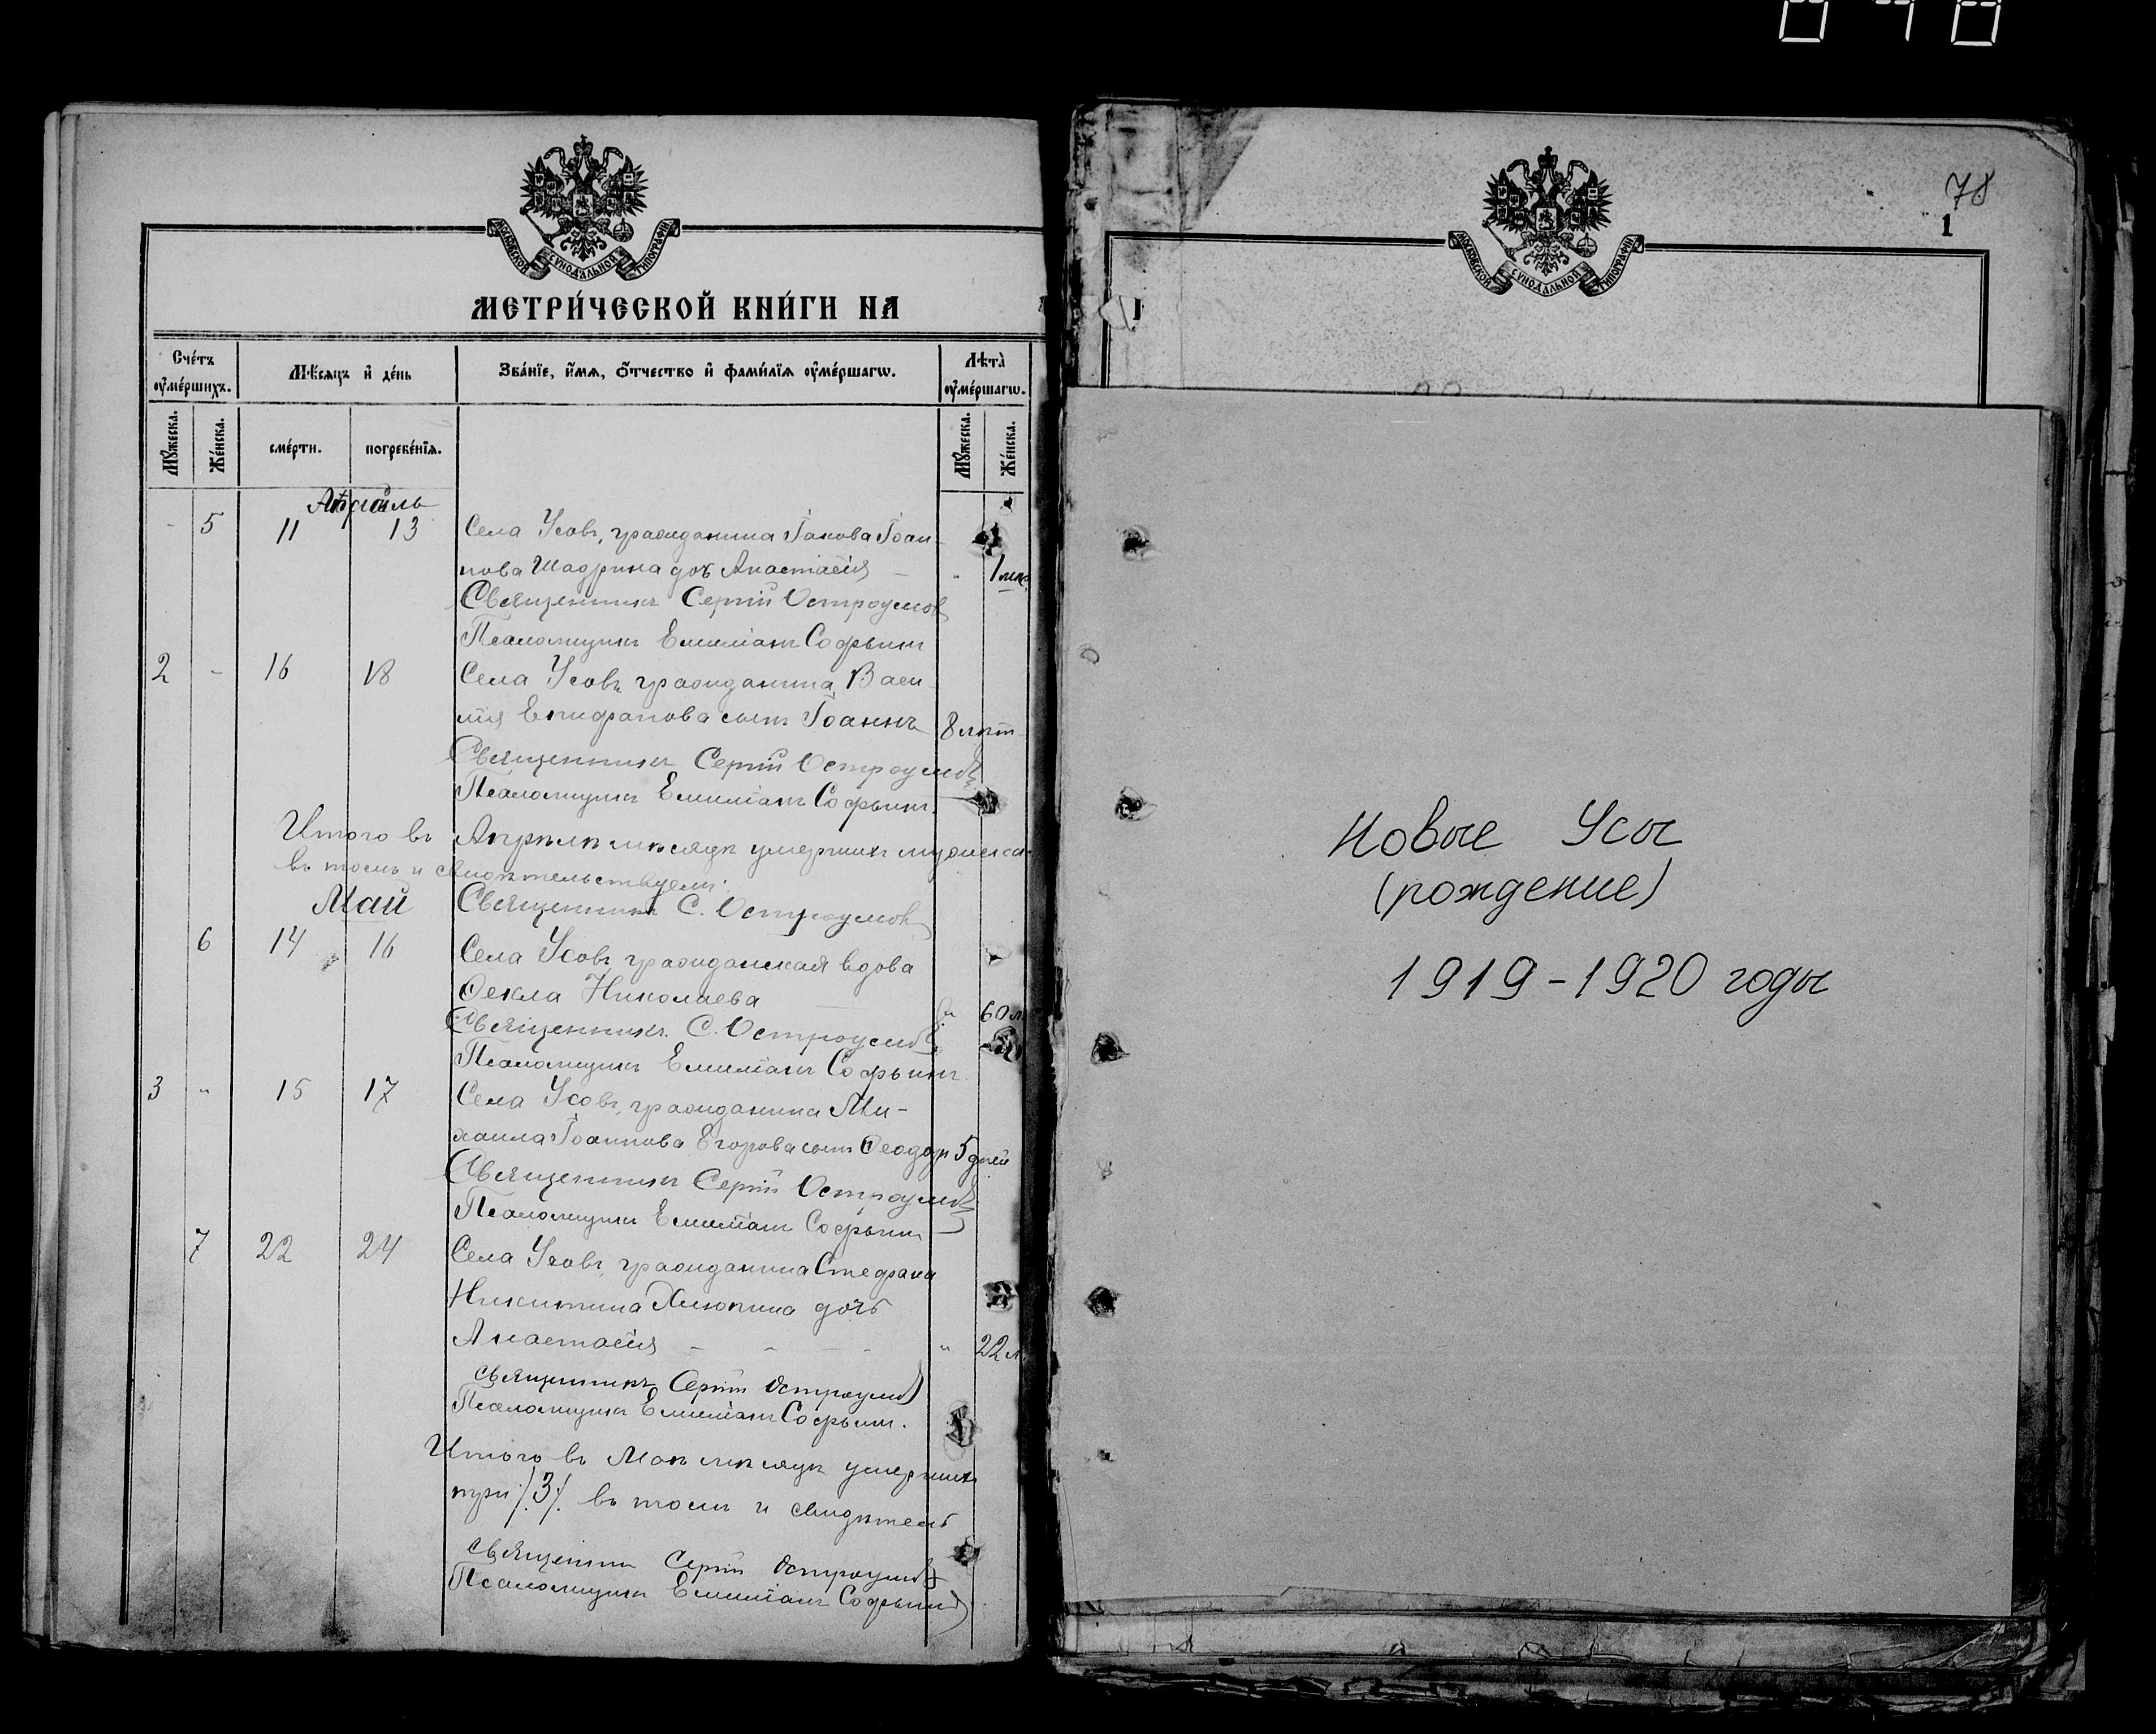 МОСКОВСКОЙ СУНОДАЛЬНОЙ ТИПОГРАФІИ
МЕТРИ́ЧЕСКОЙ КНИ́ГИ НА
Сче́тъ ᲂу҆ме́ршихъ.
Мѣ́сяцъ и҆ де́нь
Зва́нїе, и҆́мѧ, ѻ҆́тчество и҆ фами́лїѧ ᲂу҆ме́ршагѡ.
Лѣта̀ ᲂу҆ме́ршагѡ.
Мꙋ́жеска.
Же́нска.
сме́рти.
погребе́нїѧ.
Мꙋ́жеска.
Же́нска.
Апрѣль
- 5 11 13 Села Усовъ, гражданина Іакова Іоан-
нова Шадрина дочь Анастасія - " 1 мѣс.
Священникъ Сергій Остроумовъ
Псаломщикъ Емиліанъ Софьинъ
2 - 16 18 Села Усовъ гражданина Васи
лія Епифанова сынъ Іоаннъ 8 лѣт
Священникъ Сергій Остроумовъ
Псаломщикъ Емиліанъ Софьинъ.
Итого въ Апрѣлѣ мѣсяцѣ умершихъ мужеска
въ томъ и свидѣтельствуемъ:
Май Священникъ С. Остроумовъ
6 14 16 Села Усовъ гражданская вдова
Ѳекла Николаева " 60 л
Священникъ С. Остроумовъ
Псаломщикъ Емиліанъ Софьинъ
3 " 15 17 Села Усовъ, гражданина Ми-
хаила Іоаннова Егорова сынъ Ѳеодоръ 5 дней
Священникъ Сергій Остроумовъ
Псаломщикъ Емиліанъ Софьинъ
7 22 24 Села Усовъ, гражданина Стефана
Никитина Хлюпина дочь
Анастасія - - - - " 22 л.
Священникъ Сергій Остроумовъ
Псаломщикъ Емиліанъ Софьинъ.
Итого въ Маѣ мѣсяцѣ умершихъ
три /3/. въ томъ и свидѣтель
Священник Сергій Остроумовъ
Псаломщикъ Емиліанъ Софьинъ
78
1
МОСКОВСКОЙ СУНОДАЛЬНОЙ ТИПОГРАФІИ
Новые Усы
(рождение)
1919-1920 годы